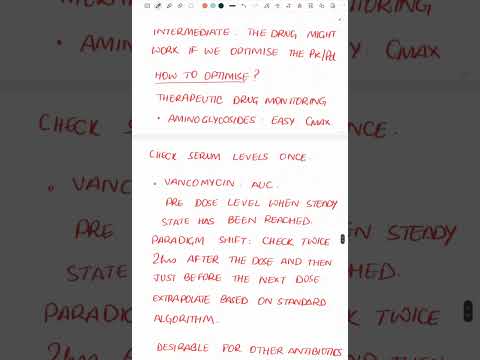 INTERMEDIATE. THE DRUG MIGHT
WORK IF WE OPTIMISE THE PK/Pd
HOW TO OPTIMISE?
THERAPEUTIC DRUG MONITORING
• AMINOGLYCOSIDES. EASY CMAX
CHECK SERUM LEVELS ONCE.
• VANCOMYCIN. AUC.
PRE DOSE LEVEL WHEN STEADY
STATE HAS BEEN REACHED.
PARADIGM SHIFT: CHECK TWICE
2hrs AFTER THE DOSE AND THEN
JUST BEFORE THE NEXT DOSE
EXTRAPOLATE BASED ON STANDARD
ALGORITHM.
DESIRABLE FOR OTHER ANTIBIOTICS
EN STEADY
STATE
HED.
PARAD
K TWICE